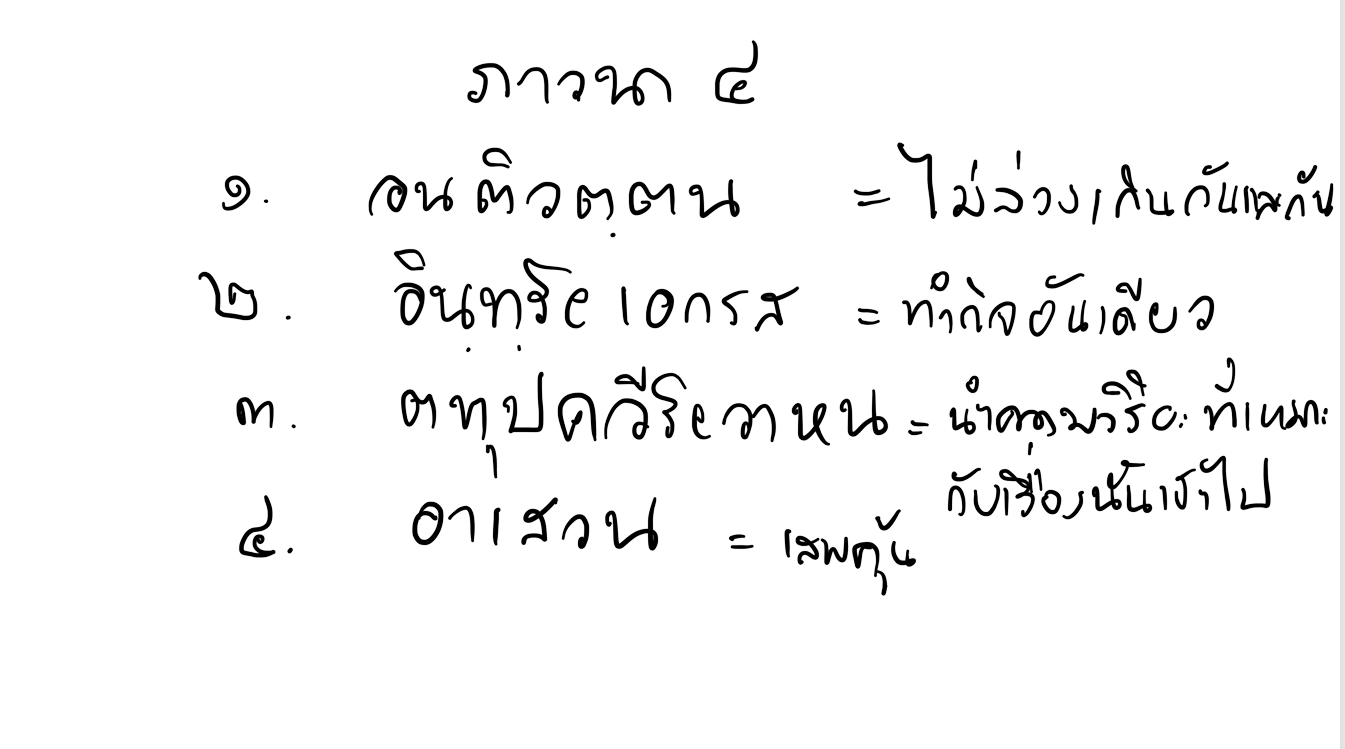 ภาวนา ๔
๑. อนติวตฺตน = ไม่ล่วงเกินกันและกัน
๒. อินฺทฺริยเอกรส = ทำกิจอันเดียว
๓. ตทุปควีริยวาหน = นำความวิริยะที่เหมาะ
กับเรื่องนั้นเข้าไป
๔. อาเสวน = เสพคุ้น